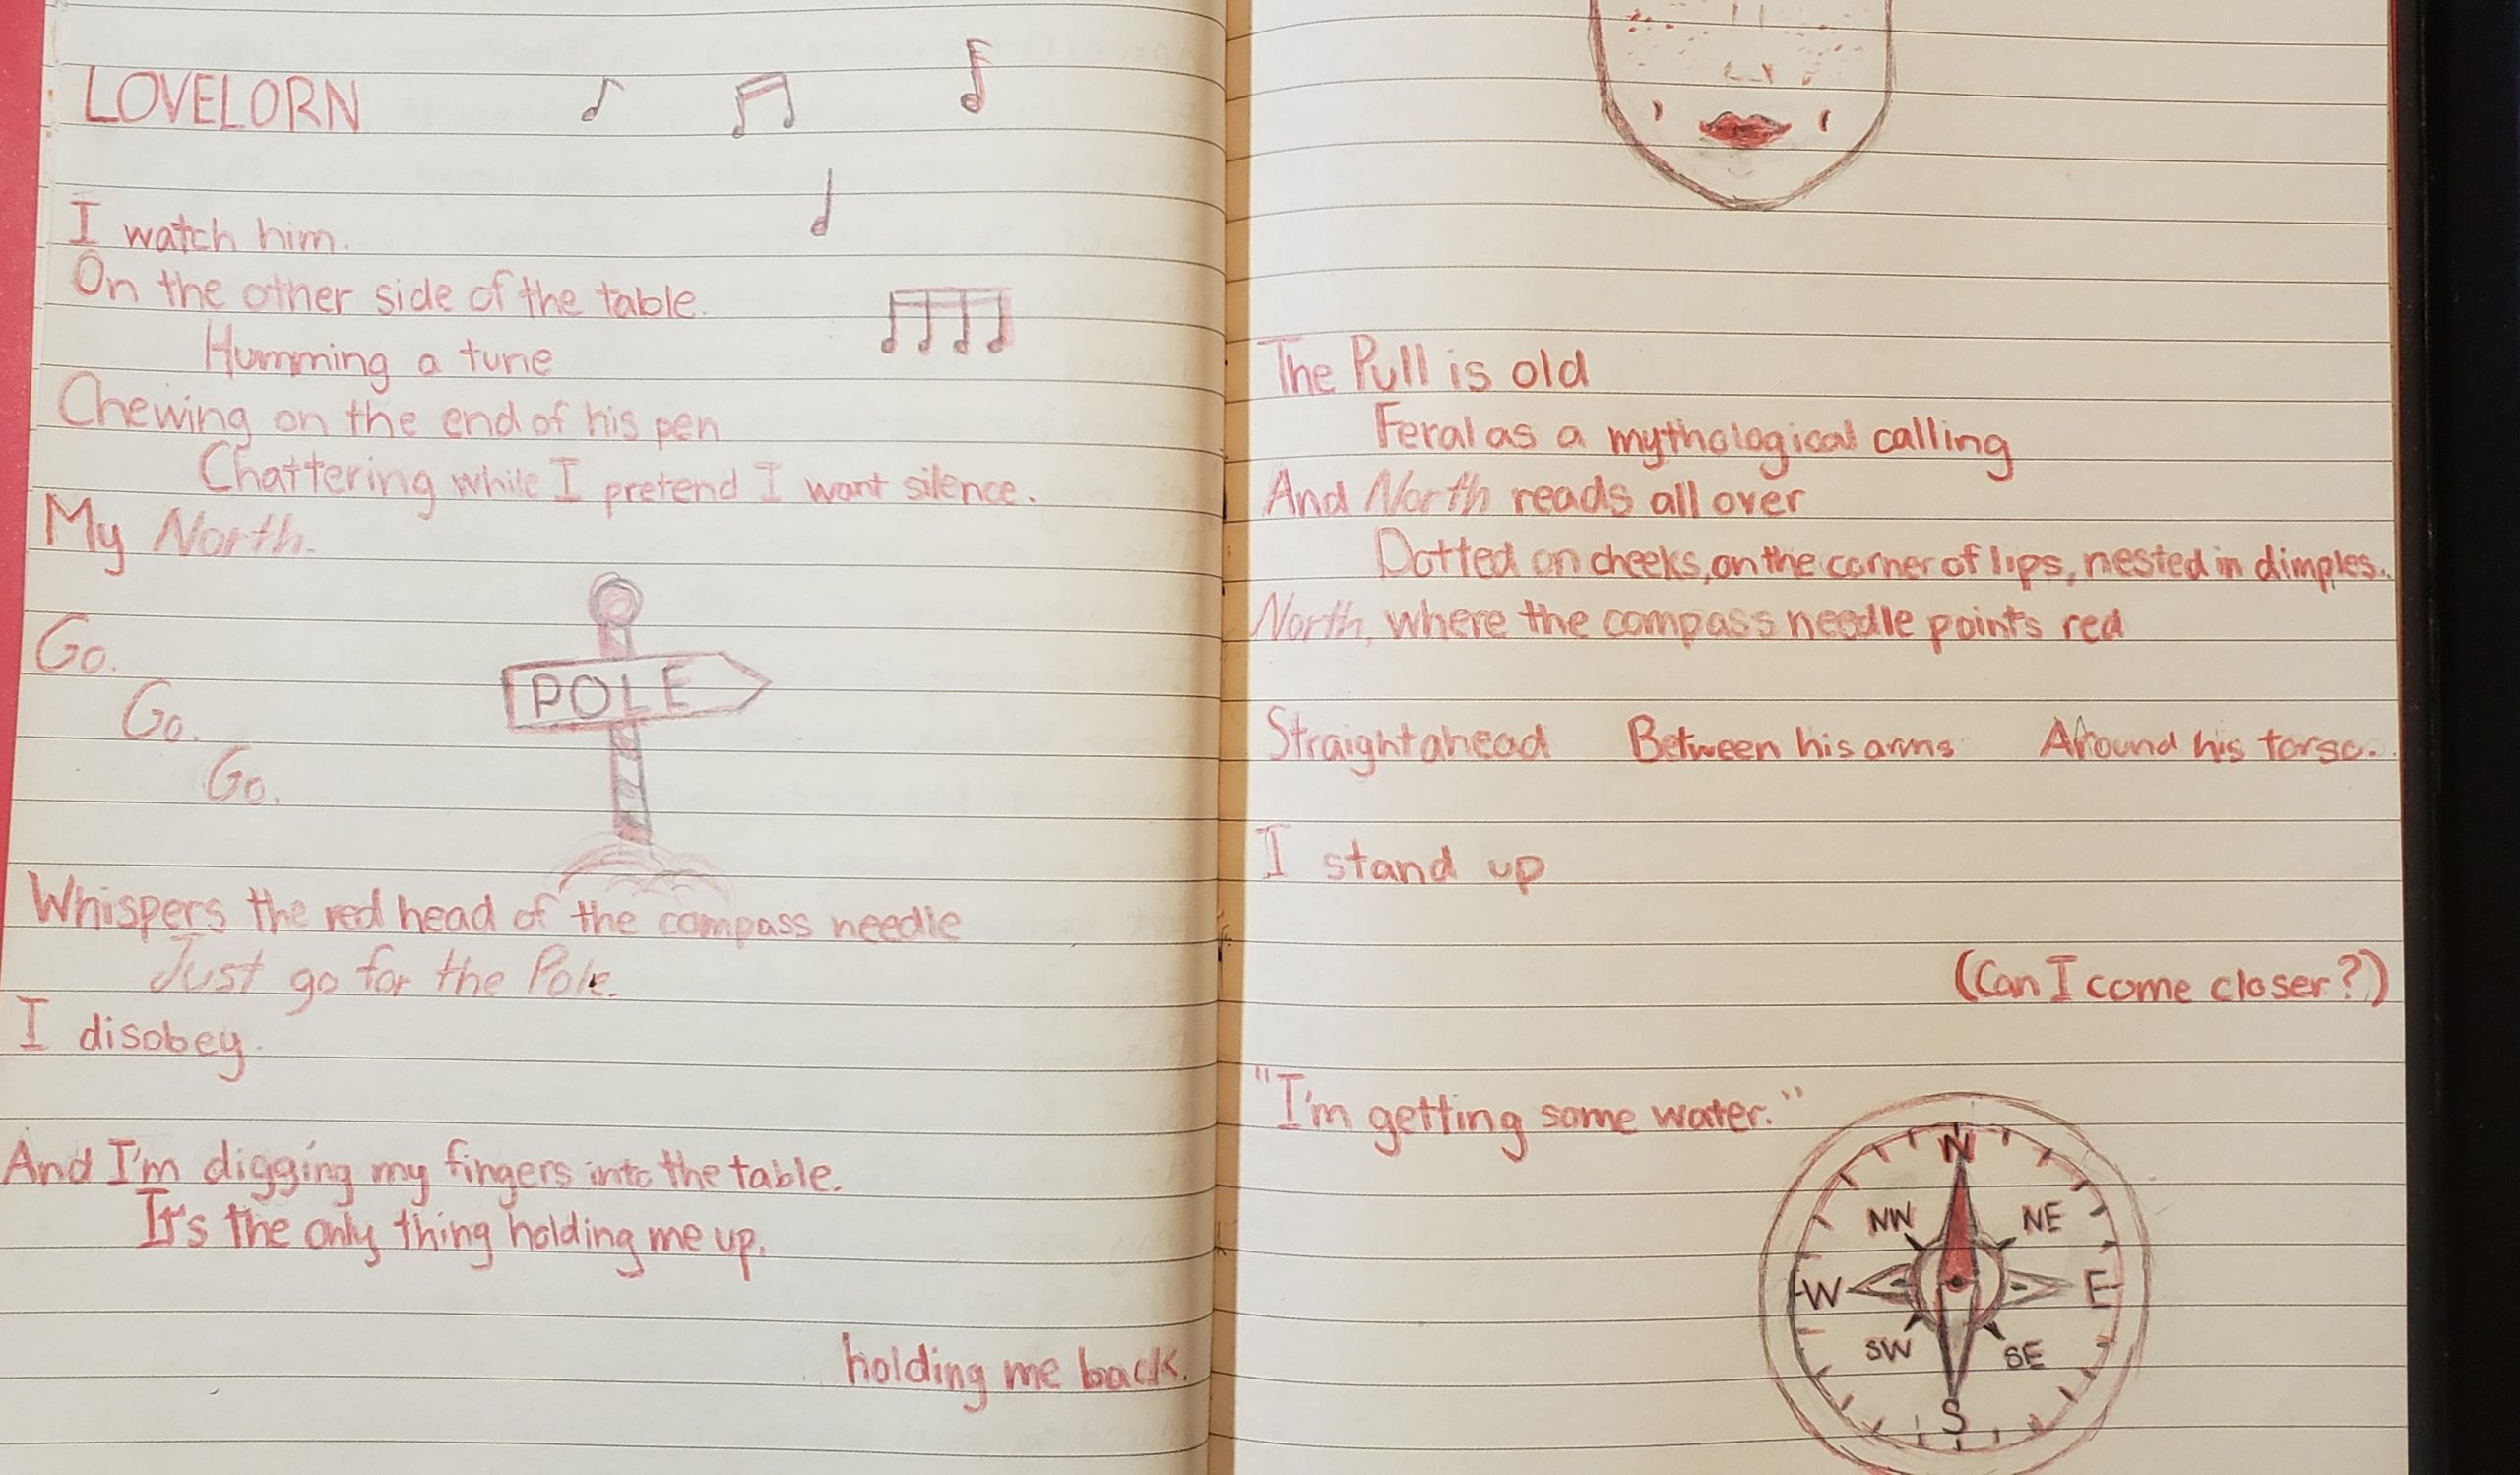 LOVELORN
I watch him.
On the other side of the table.
Humming a tune
Chewing on the end of his pen
Chattering while I pretend I want silence.
My North.
Go.
Go.
Go.
POLE
Whispers the red head of the compass needle
Just go for the Pole.
I disobey.
And I'm digging my fingers into the table.
It's the only thing holding me up.
holding me back.
The Pull is old
Feral as a mythological calling
And North reads all over
Dotted on cheeks, on the corner of lips, nested in dimples.
North, where the compass needle points red
Straight ahead Between his arms Around his torso.
I stand up
(Can I come closer?)
"I'm getting some water."
N
NW NE
W E
SW SE
S